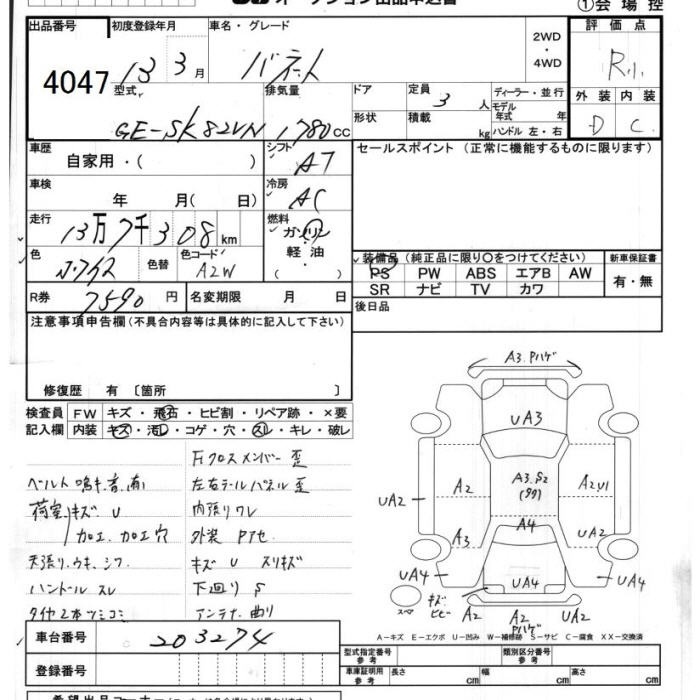 オークション出品申込書
①会場控
出品番号
4047
初度登録年月
13 3月
車名・グレード
バネット
2WD
・
4WD
評価点
R1
型式
GE-SK82VN
排気量
1780cc
ドア
形状
定員
3人
積載
kg
ディーラー・並行
モデル年式 年
ハンドル 左・右
外装
内装
D
C
車歴
自家用・( )
シフト
AT
セールスポイント(正常に機能するものに限ります)
車検
年 月( 日)
冷房
AC
走行
13万7千308km
燃料
ガソリン
軽油
( )
色
色替
色コード
A2W
装備品(純正品に限り○をつけてください)
PS PW ABS エアB AW
SR ナビ TV カワ
新車保証書
有・無
R券
7590円
名変期限 月 日
後日品
注意事項申告欄(不具合内容等は具体的に記入して下さい)
修復歴 有〔箇所 〕
検査員
記入欄
FW キズ・飛石・ヒビ割・リペア跡・×要
内装 キズ・汚レ・コゲ・穴・スレ・キレ・破レ
Fクロスメンバー歪
ベルト鳴キ音有
左右テールパネル歪
荷室キズ U
内張りワレ
加工、加工穴
外装 Pアセ
天張り、ウキ、シワ
キズ U スリキズ
ハンドル スレ
下廻り S
タイヤ2本ツミコミ
アンテナ曲り
車台番号
203274
登録番号
A3.Pハゲ
UA3
A3.S2
A2
A2.U1
UA2
A3
A4
UA2
UA4
UA4
UA4
スペア
キズ
ヒビ
A2
A2
Pハゲ
UA2
A-キズ E-エクボ U-凹み W-補修跡 S-サビ C-腐食 XX-交換済
型式指定番号
参考
類別区分番号
参考
車庫証明用
参考
長さ cm
幅 cm
高さ cm